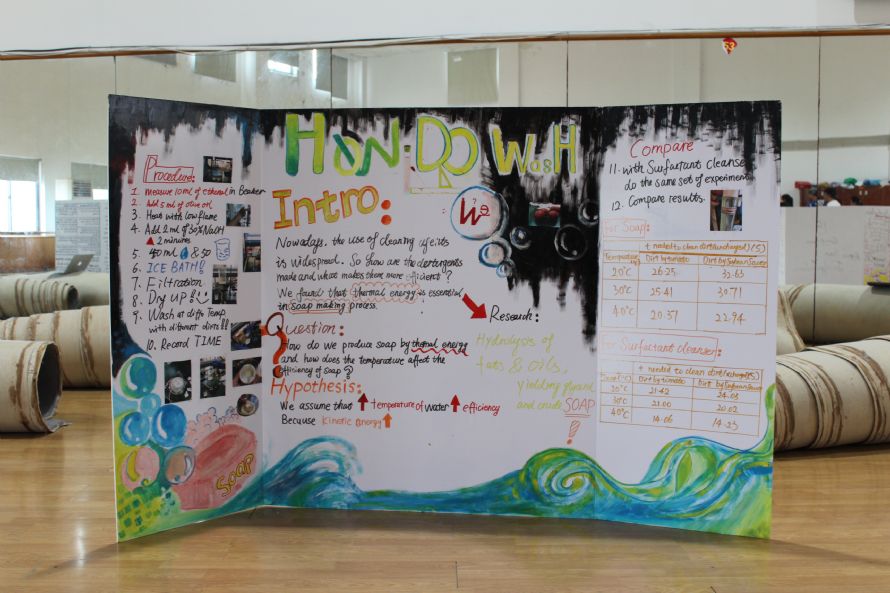 Procedure:
1. Measure 10 ml of ethanol in Beaker
2. Add 5 ml of olive oil
3. Heat with low flame
4. Add 2 ml of 30% NaOH
2 minutes
5. 450 ml
6. ICE BATH!!
7. Filtration
8. Dry UP!!
9. Wash at diff. Temp
with different dirts!!
10. Record TIME
SOAP
HON·DO WASH
Intro:
We
Nowadays, the use of cleaning
is widespread. So how are the detergents
made and what makes them more efficient?
We found that thermal energy is essential
in soap making process.
Question:
How do we produce soap by thermal energy
and how does the temperature affect the
efficiency of soap?
Hypothesis:
We assume that ↑ temperature of water ↑ efficiency
Because kinetic energy ↑
Research:
Hydrolysis of
fats & oils,
yielding
and crude SOAP
!
Compare
11. with Surfactant cleanser
do the same set of experiment
12. Compare results.
For Soap:
t needed to clean dirt (unchanged) (s)
Temperature Dirt by tomato Dirt by Soybean Sauce
20°C 26.25 32.63
30°C 25.41 30.71
40°C 20.37 22.94
For Surfactant cleanser:
t needed to clean dirt (unchanged) (s)
Dirt by tomato Dirt by Soybean Sauce
20°C 21.42 24.03
30°C 21.00 20.02
40°C 14.06 14.23